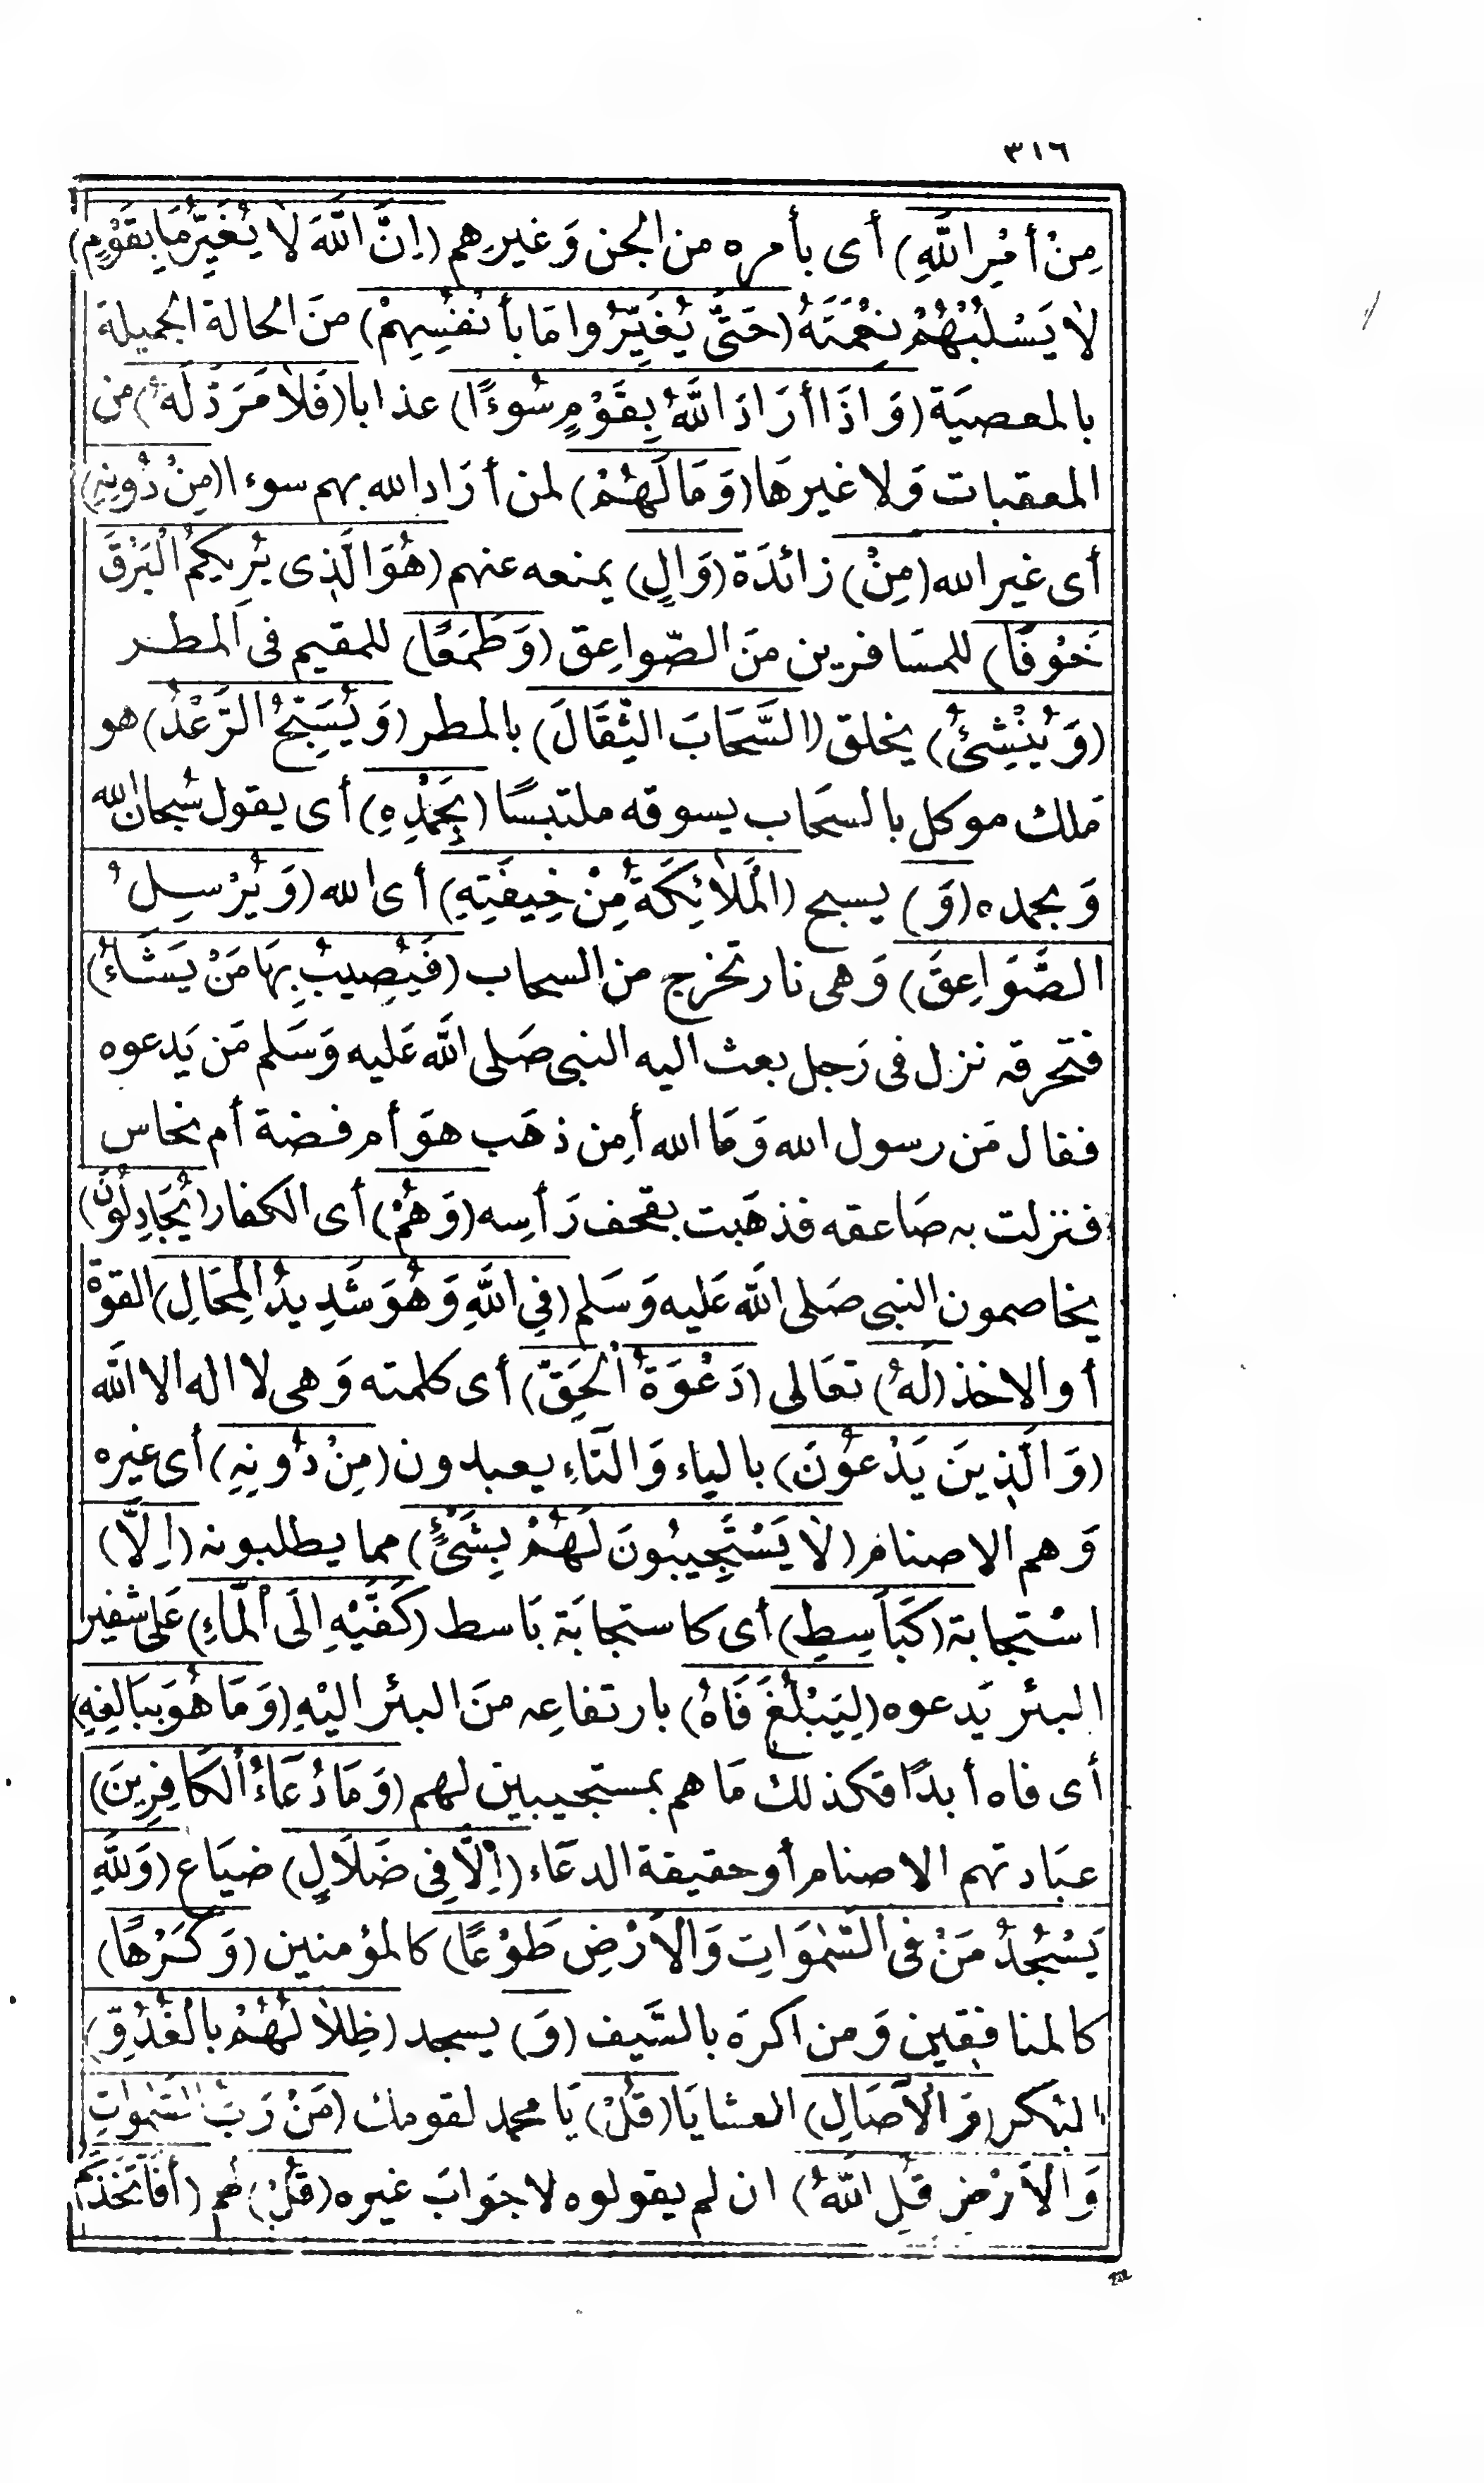 ٣١٦
مِنْ أَمْرِ اللَّهِ) أى بأمره من الجن وَغيرِهم (اِنَّ اللَّهَ لَا يُغَيِّرُ مَا بِقَوْمٍ)
لَا يَسْلُبُهُمْ نِعْمَتَهُ (حَتَّى يُغَيِّرُوا مَا بأَنْفُسِهِمْ) منَ الحالة الجميلة
بالمعصيَة (وَاِذَا أَرَادَ اللَّهُ بِقَوْمٍ سُوءًا) عذابا (فَلَا مَرَدَّ لَهُ) من
المعقبات وَلا غيرهَا (وَمَا لَهُمْ) لمن أرَاد الله بهم سوءا (مِنْ دُونِهِ)
أى غير الله (مِنْ) زائدَة (وَالٍ) يمنعه عنهم (هُوَ الَّذِى يُرِيكُمُ الْبَرْقَ
خَوْفًا) للمسَافرين منَ الصّواعِق (وَطَمَعًا) للمقيم فى المطر
(وَيُنْشِئُ) يخلق (السَّحَابَ الثِّقَالَ) بالمطر (وَيُسَبِّحُ الرَّعْدُ) هو
مَلك موكل بالسحَاب يسوقه ملتبسًا (بِحَمْدِهِ) أى يقول سُبحان الله
وَبحمده (وَ) يسبح (الْمَلَائِكَةُ مِنْ خِيفَتِهِ) أى الله (وَيُرْسِلُ
الصَّوَاعِقَ) وَهى نار تخرج من السحاب (فَيُصِيبُ بِهَا مَنْ يَشَاءُ)
فتحرقه نزل فى رَجل بعث اليه النبى صَلى اللَّه عَليه وَسَلم مَن يَدعوه
فقال مَن رسول الله وَمَا الله أمِن ذهَب هوَ أم فضة أم نحاس
فنزلت به صَاعقه فذهَبت بقحف رَأسِه (وَهُمْ) أى الكفار (يُجَادِلُونَ)
يخاصمون النبى صَلى اللَّه عَليه وَسَلم (فِي اللَّهِ وَهُوَ شَدِيدُ الْمِحَالِ) القوة
أو الاخذ (لَهُ) تعَالى (دَعْوَةُ الْحَقِّ) أى كلمته وَهى لا اله الا اللَّه
(وَالَّذِينَ يَدْعُونَ) بالياء وَالتَّاءِ يعبدون (مِنْ دُونِهِ) أى غيره
وَهم الاصنام (لَا يَسْتَجِيبُونَ لَهُمْ بِشَىْءٍ) مما يطلبونه (اِلَّا)
اسْتجابة (كَبَاسِطِ) أى كاستجابَة بَاسط (كَفَّيْهِ اِلَى الْمَاءِ) عَلى شفير
البئر يَدعوه (لِيَبْلُغَ فَاهُ) بارتفاعِه منَ البئر اليْهِ (وَمَا هُوَ بِبَالِغِهِ)
أى فاه أبدًا فكذلك مَا هم بمستجيبين لهم (وَمَا دُعَاءُ الْكَافِرِينَ)
عبَادتهم الاصنام أو حقيقة الدعَاء (اِلَّا فِى ضَلَالٍ) ضيَاع (وَلِلَّهِ
يَسْجُدُ مَنْ فى السَّمَوَاتِ وَالْأَرْضِ طَوْعًا) كالمؤمنين (وَكَرْهًا)
كالمنافقين وَمن اكرَه بالسَّيف (وَ) يسجد (ظِلَالُهُمْ بالْغُدُوِّ)
البكر (وَالْآصَالِ) العشايَا (قُلْ) يَا محمد لقومك (مَنْ رَبُّ السَّمٰوَاتِ
وَالْأَرْضِ قُلِ اللَّهُ) ان لم يقولوه لا جَوَابَ غيره (قُلْ) لهم (أَفَاتَّخَذْتُمْ